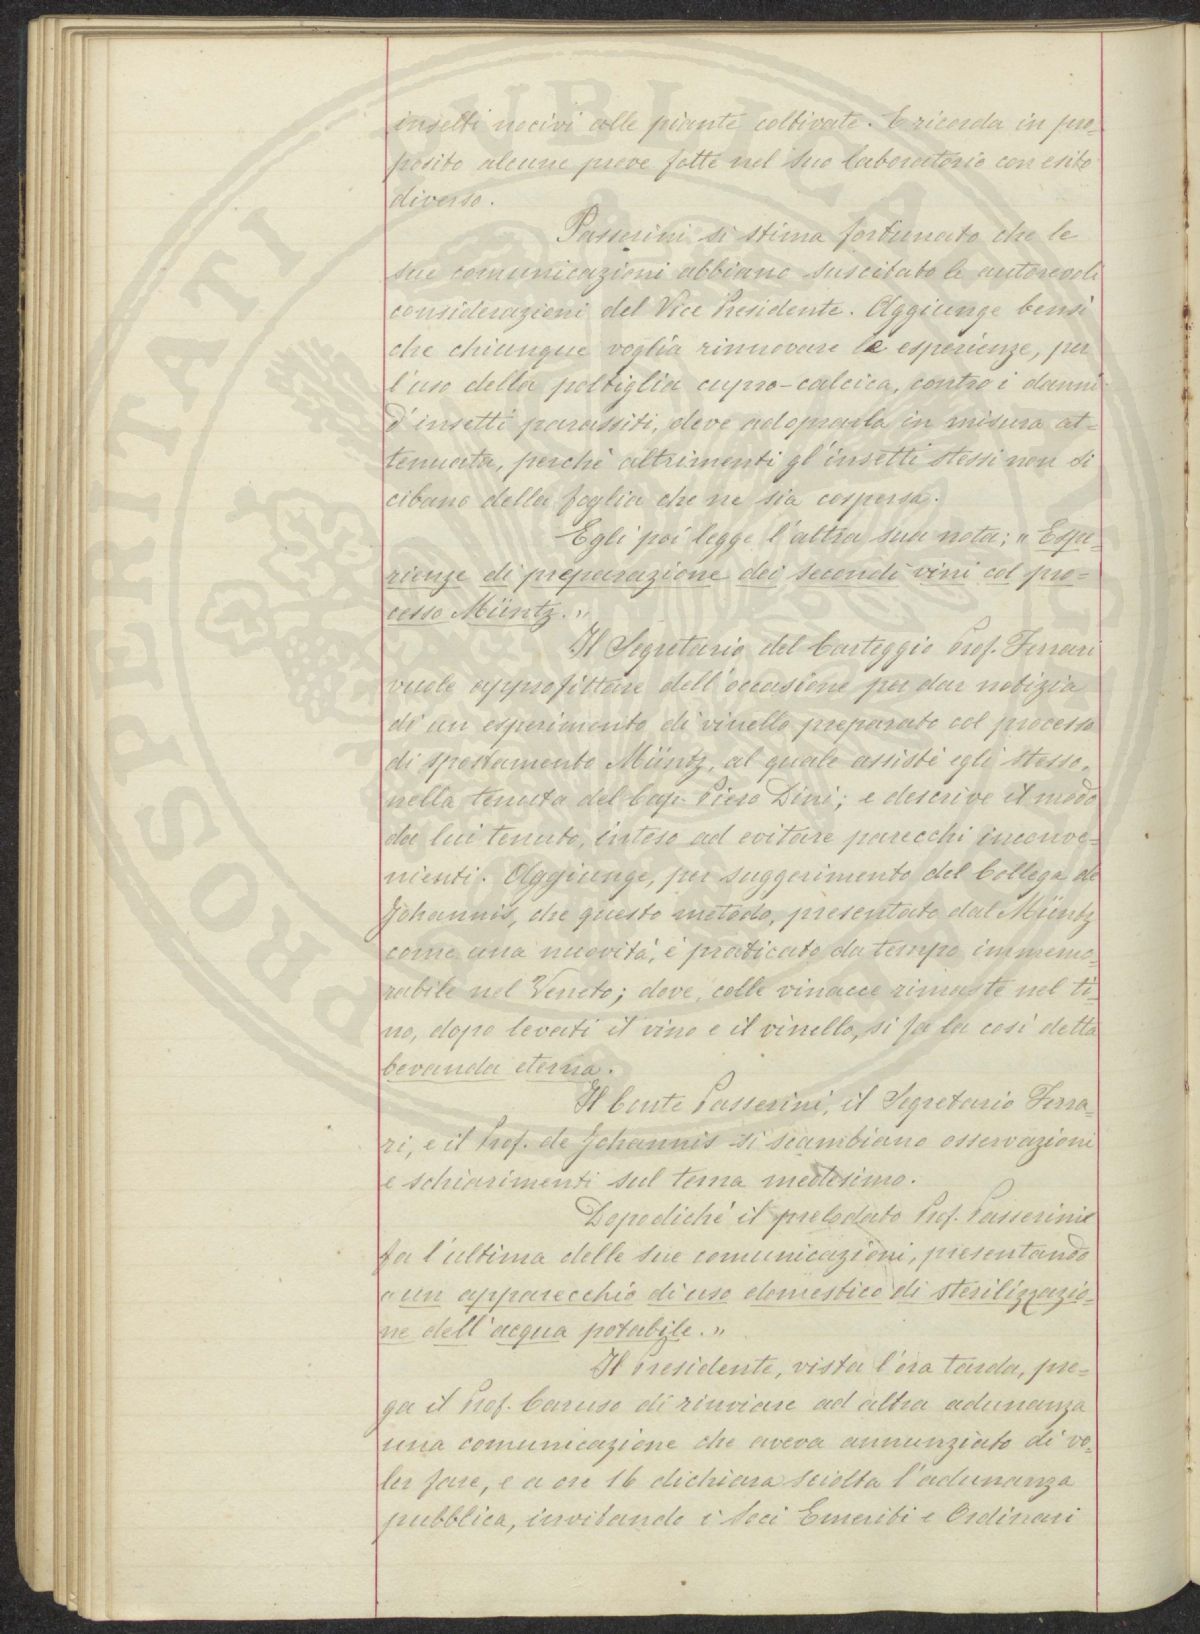 insetti nocivi alle piante coltivate. E ricorda in pro-
posito alcune prove fatte nel suo laboratorio con esito
diverso.
Passerini si stima fortunato che le
sue comunicazioni abbiano suscitato le autorevoli
considerazioni del Vice Presidente. Aggiunge bensì
che chiunque voglia rinnovare le esperienze, per
l'uso della poltiglia cupro-calcica, contro i danni
d'insetti parassiti, deve adoprarla in misura at-
tenuata, perchè altrimenti gl'insetti stessi non si
cibano della foglia che ne sia cospersa.
Egli poi legge l'altra sua nota; "Espe-
rienze di preparazione dei secondi vini col pro-
cesso Müntz."
Il Segretario del Carteggio Prof. Ferrari
vuole approfittare dell'occasione per dar notizia
di un esperimento di vinello preparato col processo
di spostamento Müntz, al quale assistè egli stesso,
nella tenuta del Cap. Piero Dini; e descrive il modo
da lui tenuto, inteso ad evitare parecchi inconve-
nienti. Aggiunge, per suggerimento del Collega de
Johannis, che questo metodo, presentato dal Müntz
come una nuovità, è praticato da tempo immemo-
rabile nel Veneto; dove, colle vinacce rimaste nel ti-
no, dopo levati il vino e il vinello, si fa la così detta
bevanda eterna.
Il Conte Passerini, il Segretario Ferra-
ri, e il Prof. de Johannis si scambiano osservazioni
e schiarimenti sul tema medesimo.
Dopodichè il prelodato Prof. Passerini
fa l'ultima delle sue comunicazioni, presentando
"un apparecchio di uso domestico di sterilizzazio-
ne dell'acqua potabile."
Il Presidente, vista l'ora tarda, pre-
ga il Prof. Caruso di rinviare ad altra adunanza
una comunicazione che aveva annunziato di vo-
ler fare, e a ore 16 dichiara sciolta l'adunanza
pubblica, invitando i Soci Emeriti e Ordinari
PROSPERITATI PUBLICAE